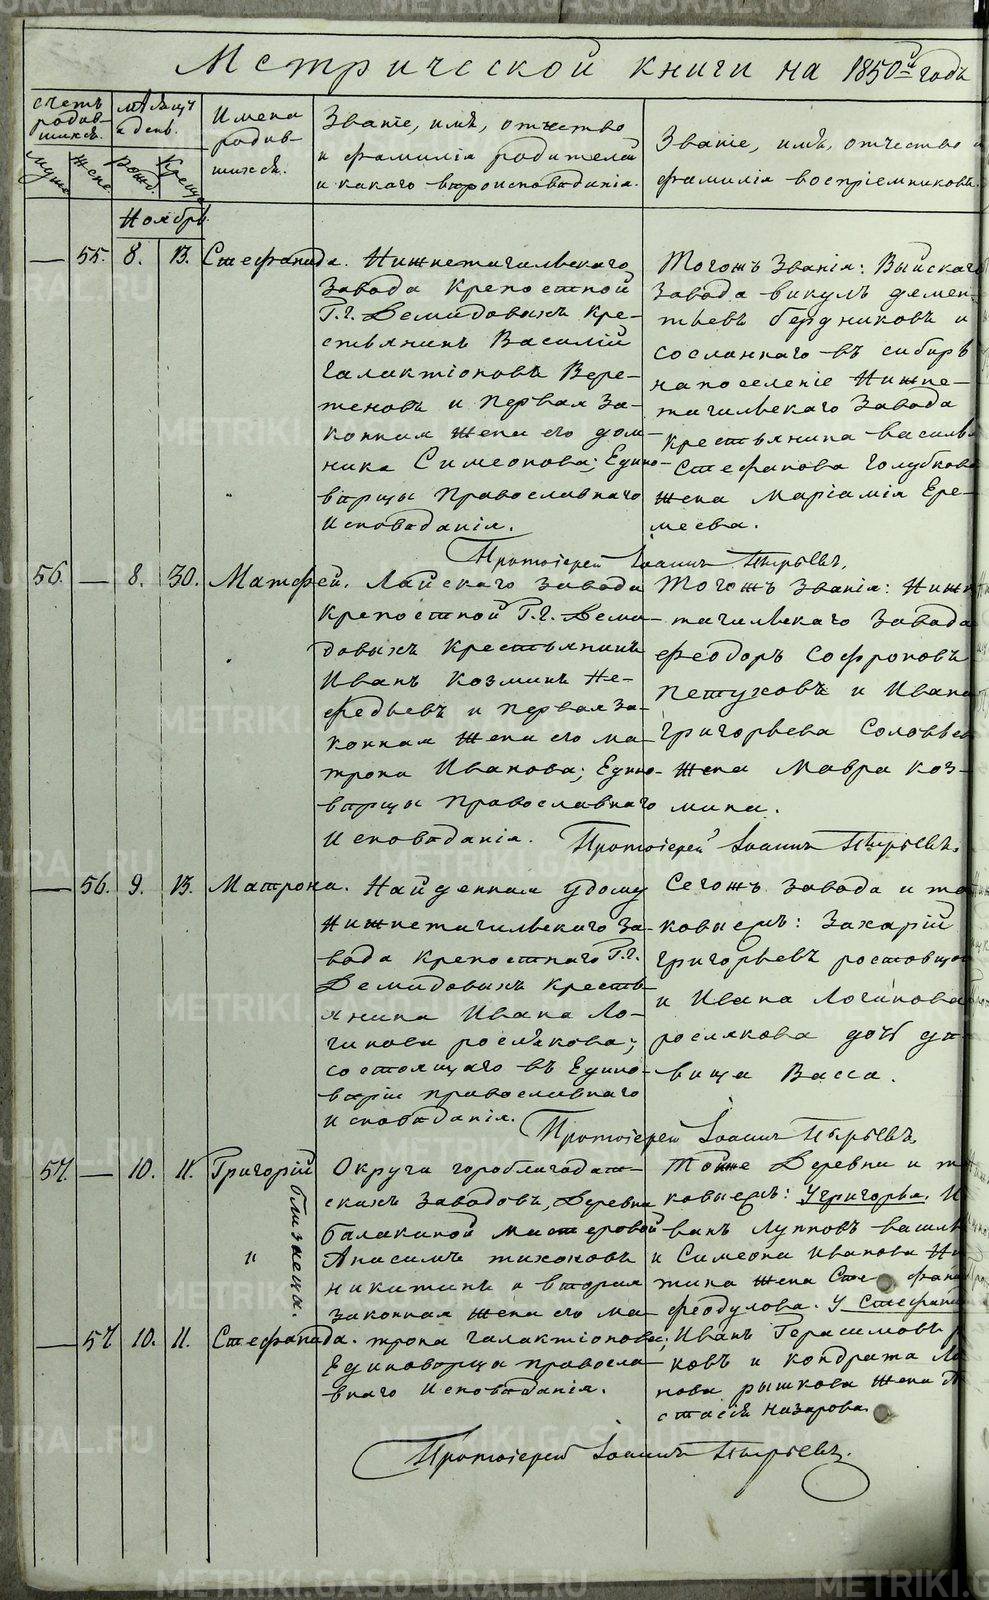 Метрической книги на 1850й годъ
Счетъ родившихся.
Муже
Жене
Мѣсяцъ и день.
Рожд.
Крещ.
Имена родившихся.
Званіе, имѣ, отчество
и фамилія родителей
и какаго вѣроисповѣданія.
Званіе, имѣ, отчество и
фамилія воспріемниковъ.
Ноябрь.
— 55. 8. 13. Стефанида.
Нижнетагильскаго
Завода крепостной
Г.г. Демидовыхъ кре-
стьянинъ Василій
Галактіоновъ Вере-
теновъ и первая за-
конная жена его дом-
ника Симеонова; Едино-
вѣрцы Православнаго
Исповѣданія.
Тогожъ Званія: Выйскаго
Завода викулъ демен-
тьевъ бердниковъ и
сосланнаго въ сибирь
на поселеніе Нижне-
тагильскаго Завода
крестьянина василья
Стефанова Голубкова
жена Маріамія Ере-
меева.
Протоіерей Іоаннъ Пырьевъ.
56. — 8. 30. Матфей.
Лайскаго завода
крепостной Г.г. Деми-
довыхъ крестьянинъ
Иванъ Козминъ Не-
федьевъ и первая за-
конная жена его ма-
трона Иванова; Едино-
вѣрцы православнаго
Исповѣданія.
Тогожъ Званія: Нижн
тагильскаго Завода
феодоръ Софроновъ
Петуховъ и Ивана
григорьева Соловьев
жена Мавра коз-
мина.
Протоіерей Іоаннъ Пырьевъ.
— 56. 9. 13. Матрона.
Найденная удому
Нижнетагильскаго За-
вода крепостнаго Г.г.
Демидовыхъ кресть-
янина Ивана Ло-
гинова рослякова;
состоящаго въ Едино-
вѣріи православнаго
исповѣданія.
Сегожъ завода и та
ковыежъ: Захарій
григорьевъ ростовщи
и Ивана Логинова
рослякова дочь дѣ-
вица Васса.
Протоіерей Іоаннъ Пырьевъ.
57. — 10. 11. Григорій
"
близнецы.
— 57 10. 11. Стефанида.
Округи гороблагодат-
скихъ заводовъ, Деревни
балакиной мастеровой
Анисимъ тихоновъ
никитинъ и вторая
законная жена его ма-
трона галактіонова;
Единовѣрцы правосла-
внаго Исповѣданія.
Тойже Деревни и та
ковыежъ: У григорья. И
ванъ Лупповъ васил
и Симеона Иванова Ни
тина жена Сте фани
феодулова. У Стефани
Иванъ Герасимовъ р
ковъ и кондрата Ло
нова рышкова жена А
стасія Назарова.
Протоіерей Іоаннъ Пырьевъ.
METRIKI.GASO-URAL.RU